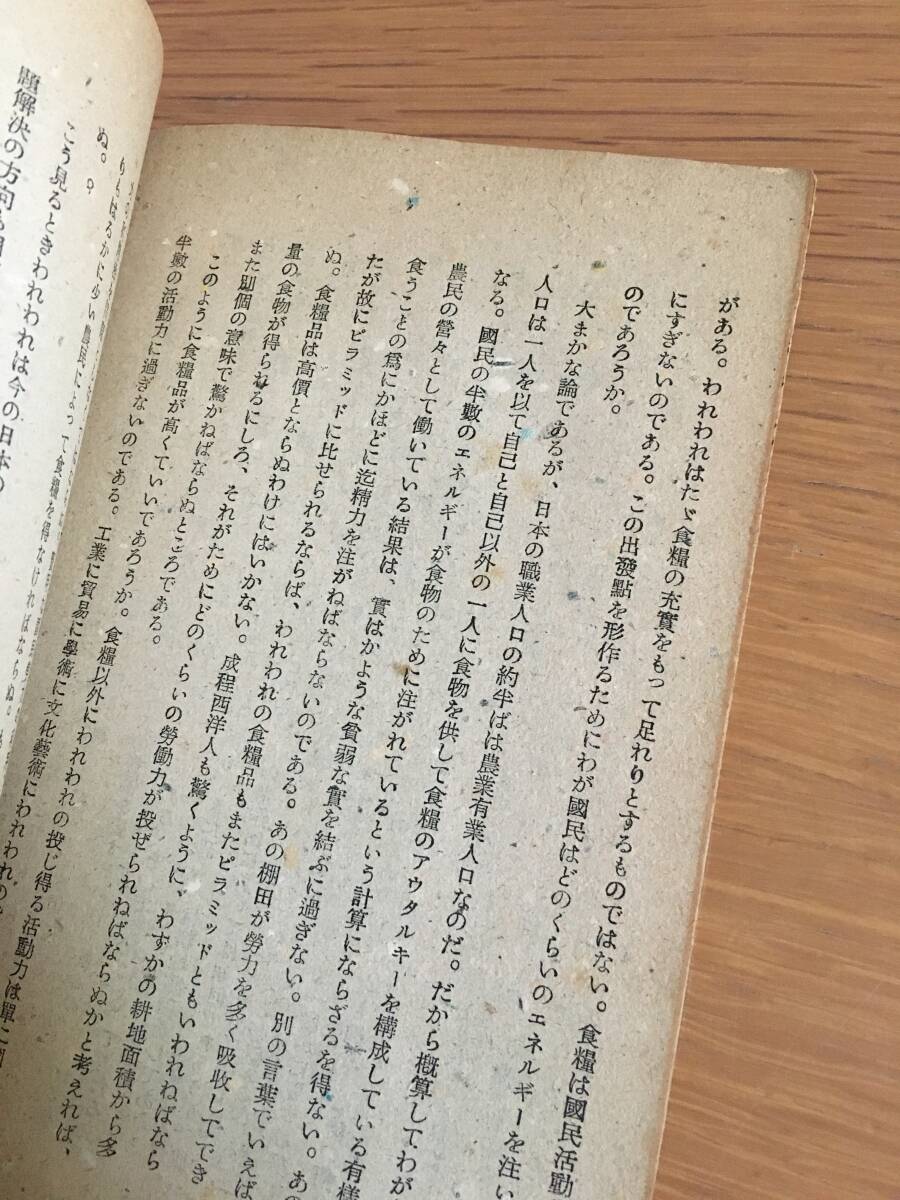 がある。われわれはたゞ食糧の充實をもって足れりとするものではない。食糧は國民活動
にすぎないのである。この出發點を形作るためにわが國民はどのくらいのエネルギーを注い
のであろうか。
大まかな論であるが、日本の職業人口の約半ばは農業有業人口なのだ。だから概算してわが
人口は一人を以て自己と自己以外の一人に食物を供して食糧のアウタルキーを構成している有樣
なる。國民の半數のエネルギーが食物のために注がれているという計算にならざるを得ない。あの
農民の營々として働いている結果は、實はかような貧弱な實を結ぶに過ぎない。別の言葉でいえば
食うことの爲にかほどに迄精力を注がねばならないのである。あの棚田が勞力を多く吸收してでき
たが故にピラミッドに比せられるならば、われわれの食糧品もまたピラミッドともいわれねばなら
ぬ。食糧品は高價とならぬわけにはいかない。成程西洋人も驚くように、わずかの耕地面積から多
量の食物が得られるにしろ、それがためにどのくらいの勞働力が投ぜられねばならぬかと考えれば、
また別個の意味で驚かねばならぬところである。
このように食糧品が高くていいであろうか。食糧以外にわれわれの投じ得る活動力は單に國
半數の活動力に過ぎないのである。工業に貿易に學術に文化藝術にわれわれの
りもはるかに少い農民によって食糧を得なければならぬ。
ぬ。
こう見るときわれわれは今の日本の
題解決の方向も